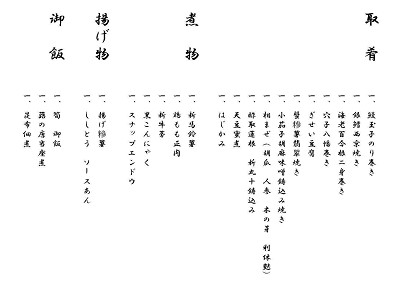 取肴
一、鰻玉子のり巻き
一、銀鱈西京焼き
一、海老百合根二身巻き
一、穴子八幡巻き
一、ぎせい豆腐
一、蟹惨薯翡翠焼き
一、小茄子胡麻味噌鋳込み焼き
一、相まぜ(胡瓜 人参 木の芽 利休麩)
一、酢取蓮根 新丸十鋳込み
一、天豆蜜煮
一、はじかみ
煮物
一、新馬鈴薯
一、鶏もも正肉
一、新牛蒡
一、黒こんにゃく
一、スナップエンドウ
揚げ物
一、揚げ惨薯
一、ししとう ソースあん
御飯
一、筍御飯
一、蕗の唐当座煮
一、昆布佃煮